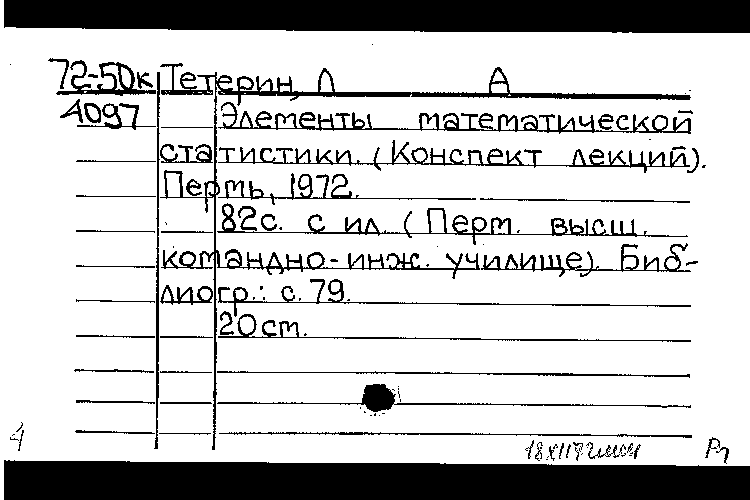 72-50к Тетерин, Л А
4097 Элементы математической
статистики. (Конспект лекций).
Пермь, 1972.
82с. с ил. (Перм. высш.
командно-инж. училище). Биб-
лиогр.: с. 79.
20 см.
4